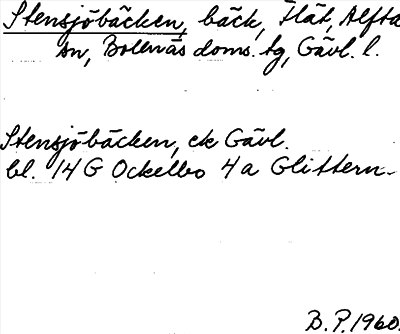 Stensjöbäcken, bäck, Flät, Alfta
sn, Bollnäs doms. tg, Gävl. l.
Stensjöbäcken, ek Gävl.
bl. 14 G Ockelbo 4 a Glittern
B. P. 1960.